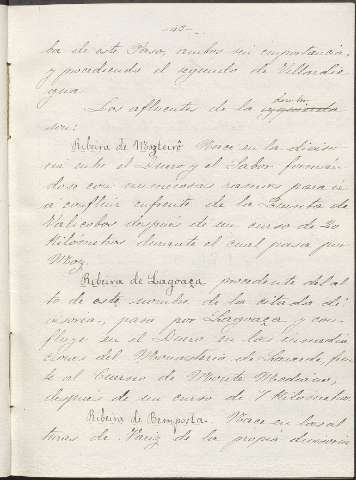 -45-
ba de este Paso, ambos sin importancia,
y procediendo el segundo de Villardie-
gua.
Los afluentes de la derecha izquierda
son:
Ribeira de Mozteirô Nace en la diviso-
ria entre el Duero y el Sabor forman-
dose con numerosas ramas para ir
a confluir enfrente de la Punta de
Valicobos después de un curso de 20
Kilometros durante el cual pasa por
Moz.
Ribeira de Lagoaça procedente del al-
to de este nombre de la citada di-
visoria, pasa por Lagoaça y con-
fluye en el Duero en las inmedia-
ciones del Monasterio de Laverde fren-
te al Cuerno de Monte Mediano,
después de un curso de 7 Kilometros
Ribeira de Bemposta. Nace en las al-
turas de Variz de la propia divisoria